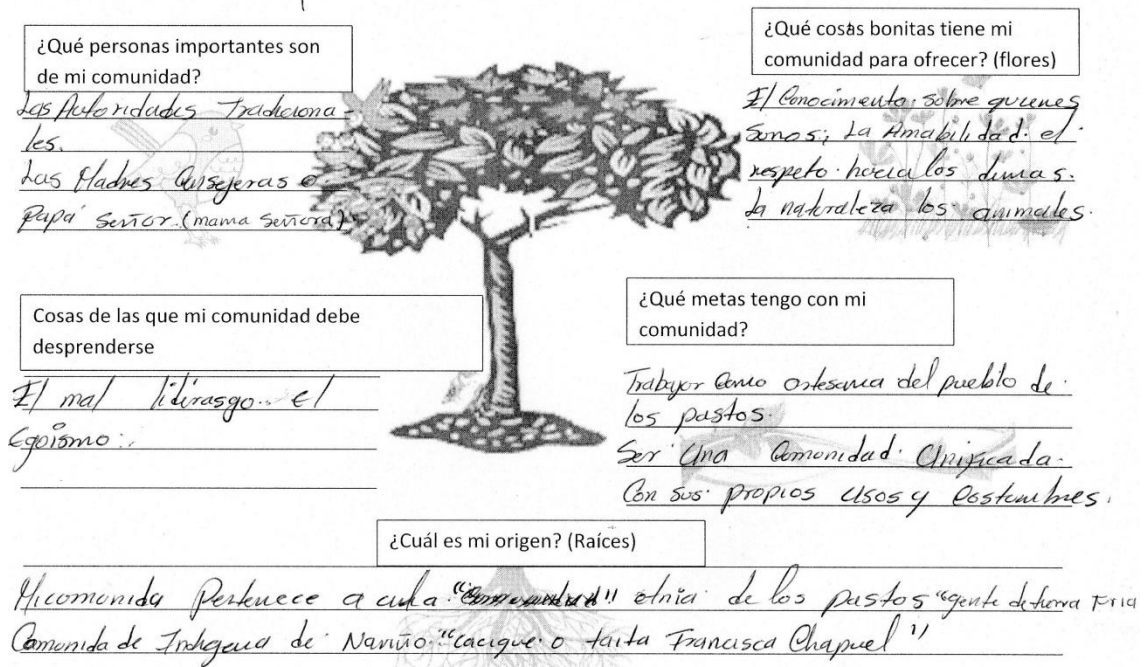 ¿Qué personas importantes son
de mi comunidad?
Las Autoridades Tradiciona
les.
Las Madres Consejeras o
Papá Señor. (mama Señora)
¿Qué cosas bonitas tiene mi
comunidad para ofrecer? (flores)
El Conocimiento sobre quienes
Somos; La Amabilidad. el
respeto hacia los dimas.
La naturaleza los animales.
Cosas de las que mi comunidad debe
desprenderse
El mal lidirasgo.. el
Egoismo:.
¿Qué metas tengo con mi
comunidad?
Trabajar como artesana del pueblo de
los pastos.
Ser Una Comunidad Unificada.
Con sus propios Usos y Costumbres.
¿Cuál es mi origen? (Raíces)
Micomunida Pertenece a etnia de los pastos "gente de tierra Fria
Comunida de Indigena de Nariño "cacique o taita Francisca Chapuel"